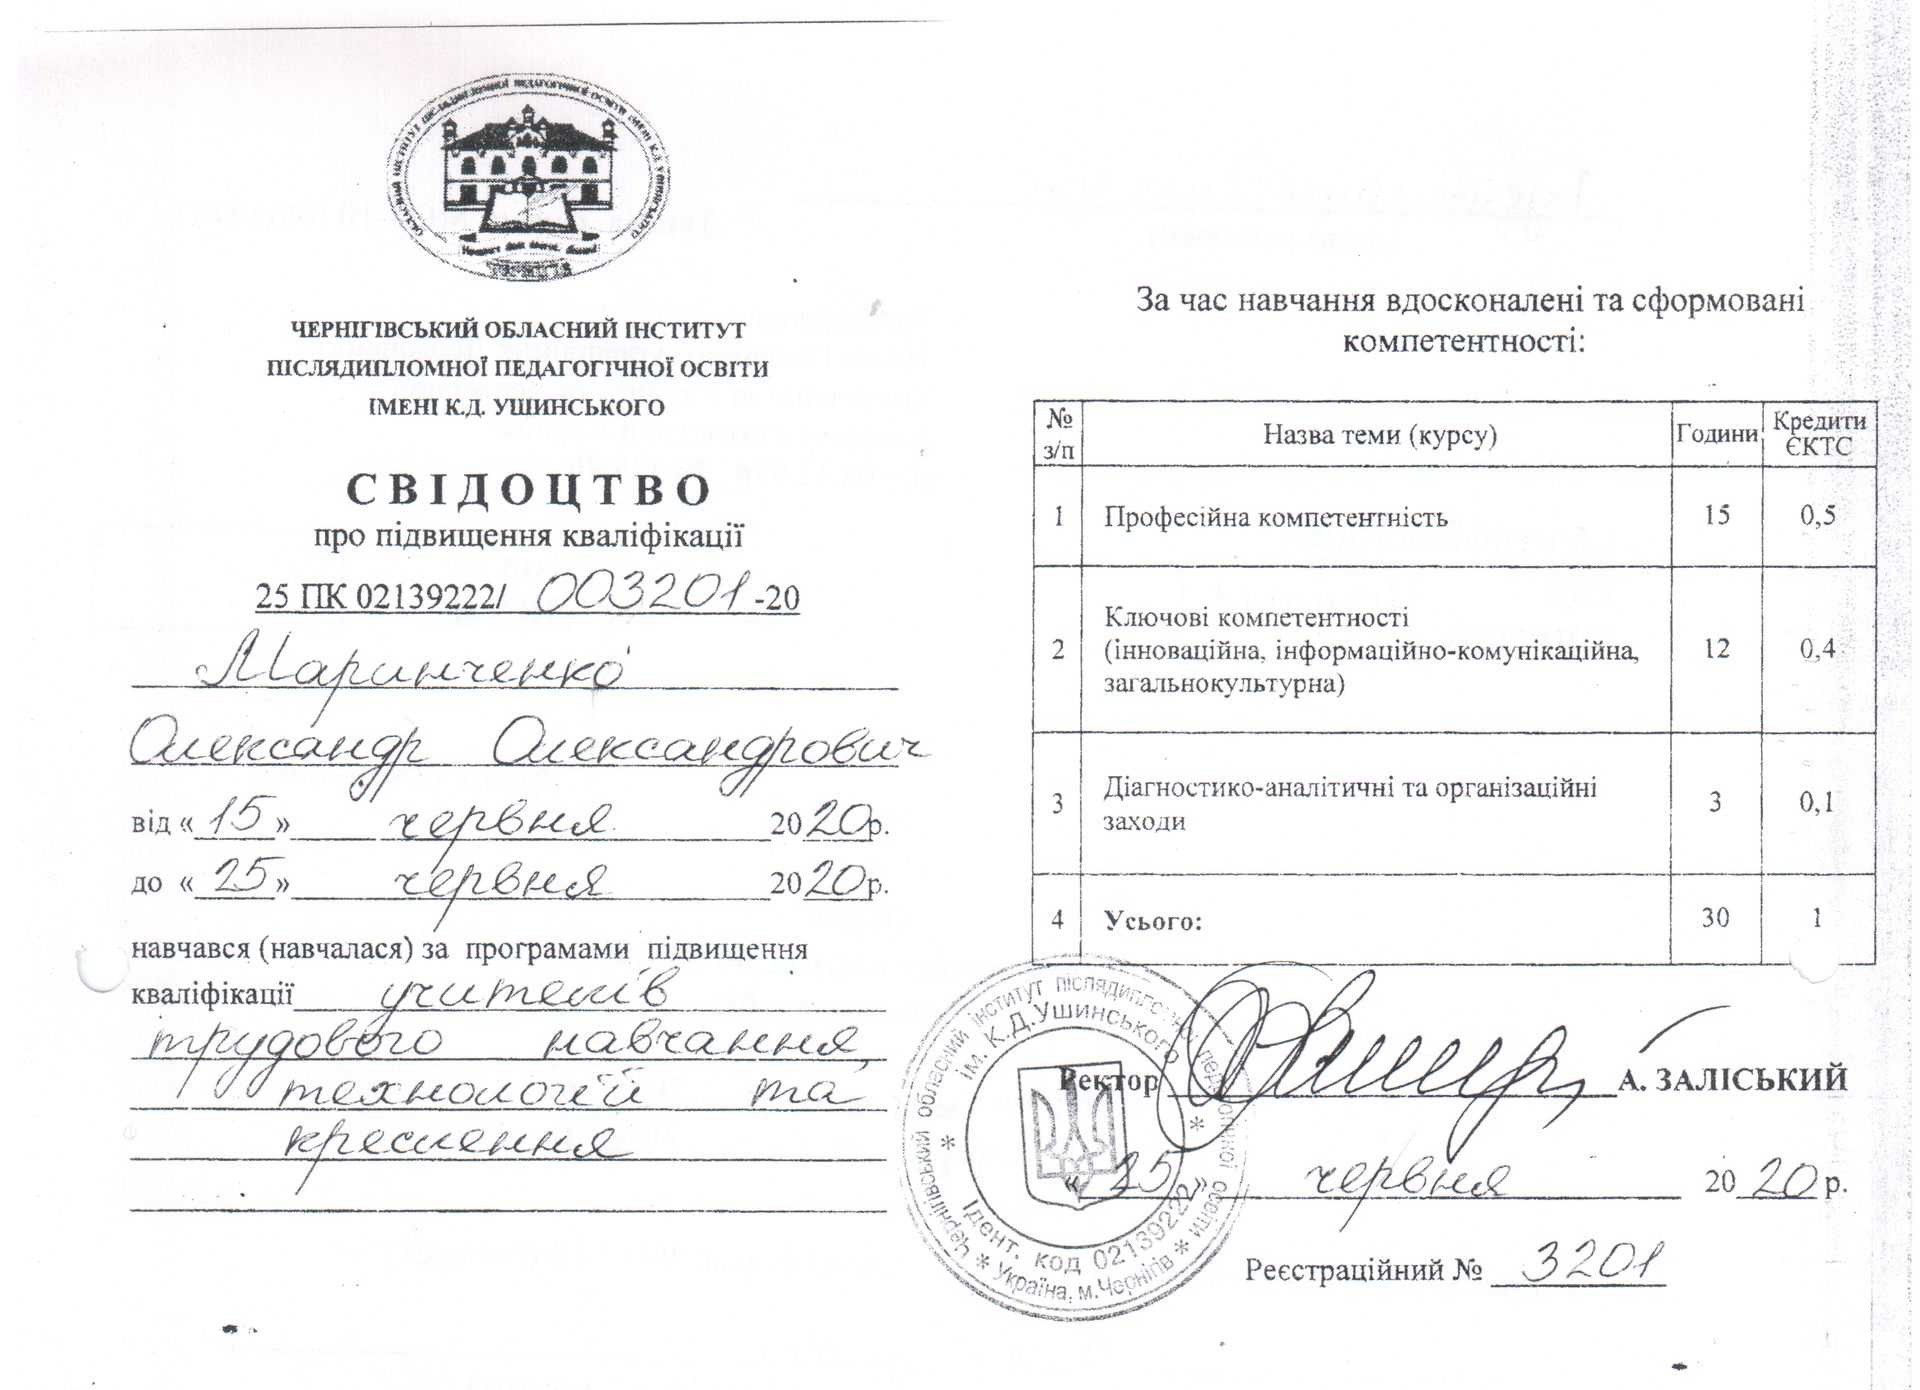 ОБЛАСНИЙ ІНСТИТУТ ПІСЛЯДИПЛОМНОЇ ПЕДАГОГІЧНОЇ ОСВІТИ ІМЕНІ К.Д. УШИНСЬКОГО
ЧЕРНІГІВСЬКИЙ ОБЛАСНИЙ ІНСТИТУТ
ПІСЛЯДИПЛОМНОЇ ПЕДАГОГІЧНОЇ ОСВІТИ
ІМЕНІ К.Д. УШИНСЬКОГО
СВІДОЦТВО
про підвищення кваліфікації
25 ПК 02139222/ 003201 -20
Маринченко
Олександр Олександрович
від «15» червня 2020р.
до «25» червня 2020р.
навчався (навчалася) за програмами підвищення
кваліфікації учителів
трудового навчання,
технологій та
креслення
За час навчання вдосконалені та сформовані
компетентності:
№ з/п Назва теми (курсу) Години Кредити ЄКТС
1 Професійна компетентність 15 0,5
2 Ключові компетентності
(інноваційна, інформаційно-комунікаційна,
загальнокультурна) 12 0,4
3 Діагностико-аналітичні та організаційні
заходи 3 0,1
4 Усього: 30 1
Ректор А. ЗАЛІСЬКИЙ
«25» червня 2020 р.
Реєстраційний № 3201
Чернігівський обласний інститут післядипломної педагогічної освіти
ім. К.Д.Ушинського
Ідент. код 02139222
* Україна, м.Чернігів *